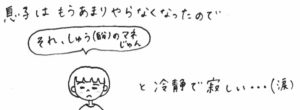 息子はもうあまりやらなくなったので
それ、しゅう(自分)のマネ
じゃん
と冷静で寂しい・・・(涙)